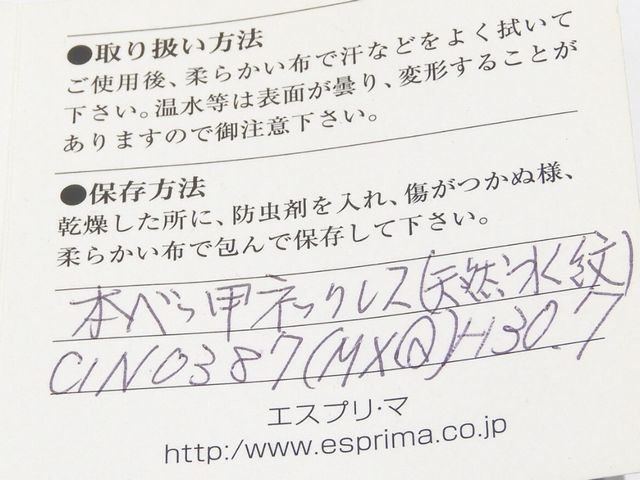 ●取り扱い方法
ご使用後、柔らかい布で汗などをよく拭いて
下さい。温水等は表面が曇り、変形することが
ありますので御注意下さい。
●保存方法
乾燥した所に、防虫剤を入れ、傷がつかぬ様、
柔らかい布で包んで保存して下さい。
本べっ甲ネックレス(天然氷紋)
CIN0387(MXQ)H30.7
エスプリ・マ
http:/www.esprima.co.jp